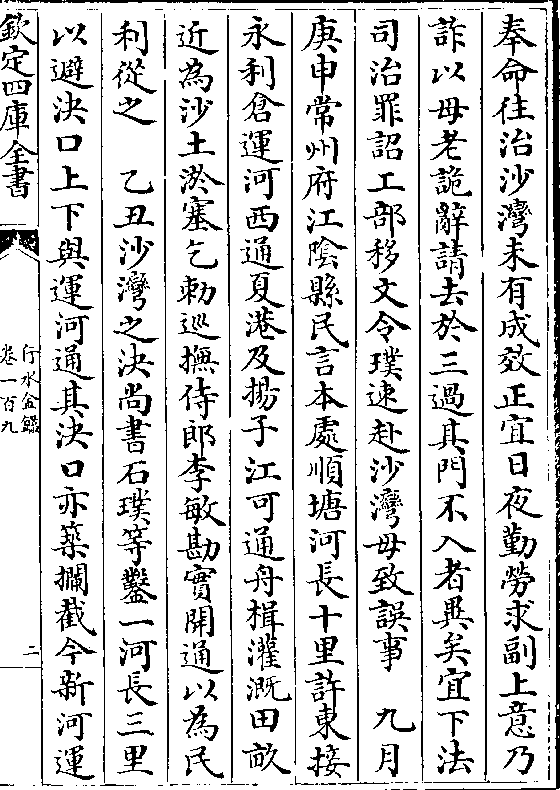 奉命往治沙灣未有成效正宜日夜勤勞求副上意乃
詐以母老詭辭請去於三過其門不入者異矣宜下法
司治罪詔工部移文令璞速赴沙灣毋致誤事　九月
庚申常州府江陰縣民言本處順塘河長十里許東接
永利倉運河西通夏港及揚子江可通舟楫灌溉田畝
近為沙土淤塞乞勅巡撫侍郎李敏勘實開通以為民
利從之　乙丑沙灣之決尚書石璞等鑿一河長三里
以避決口上下與運河通其決口亦築攔截今新河運
欽定四庫全書
行水金鑑
卷一百九
二